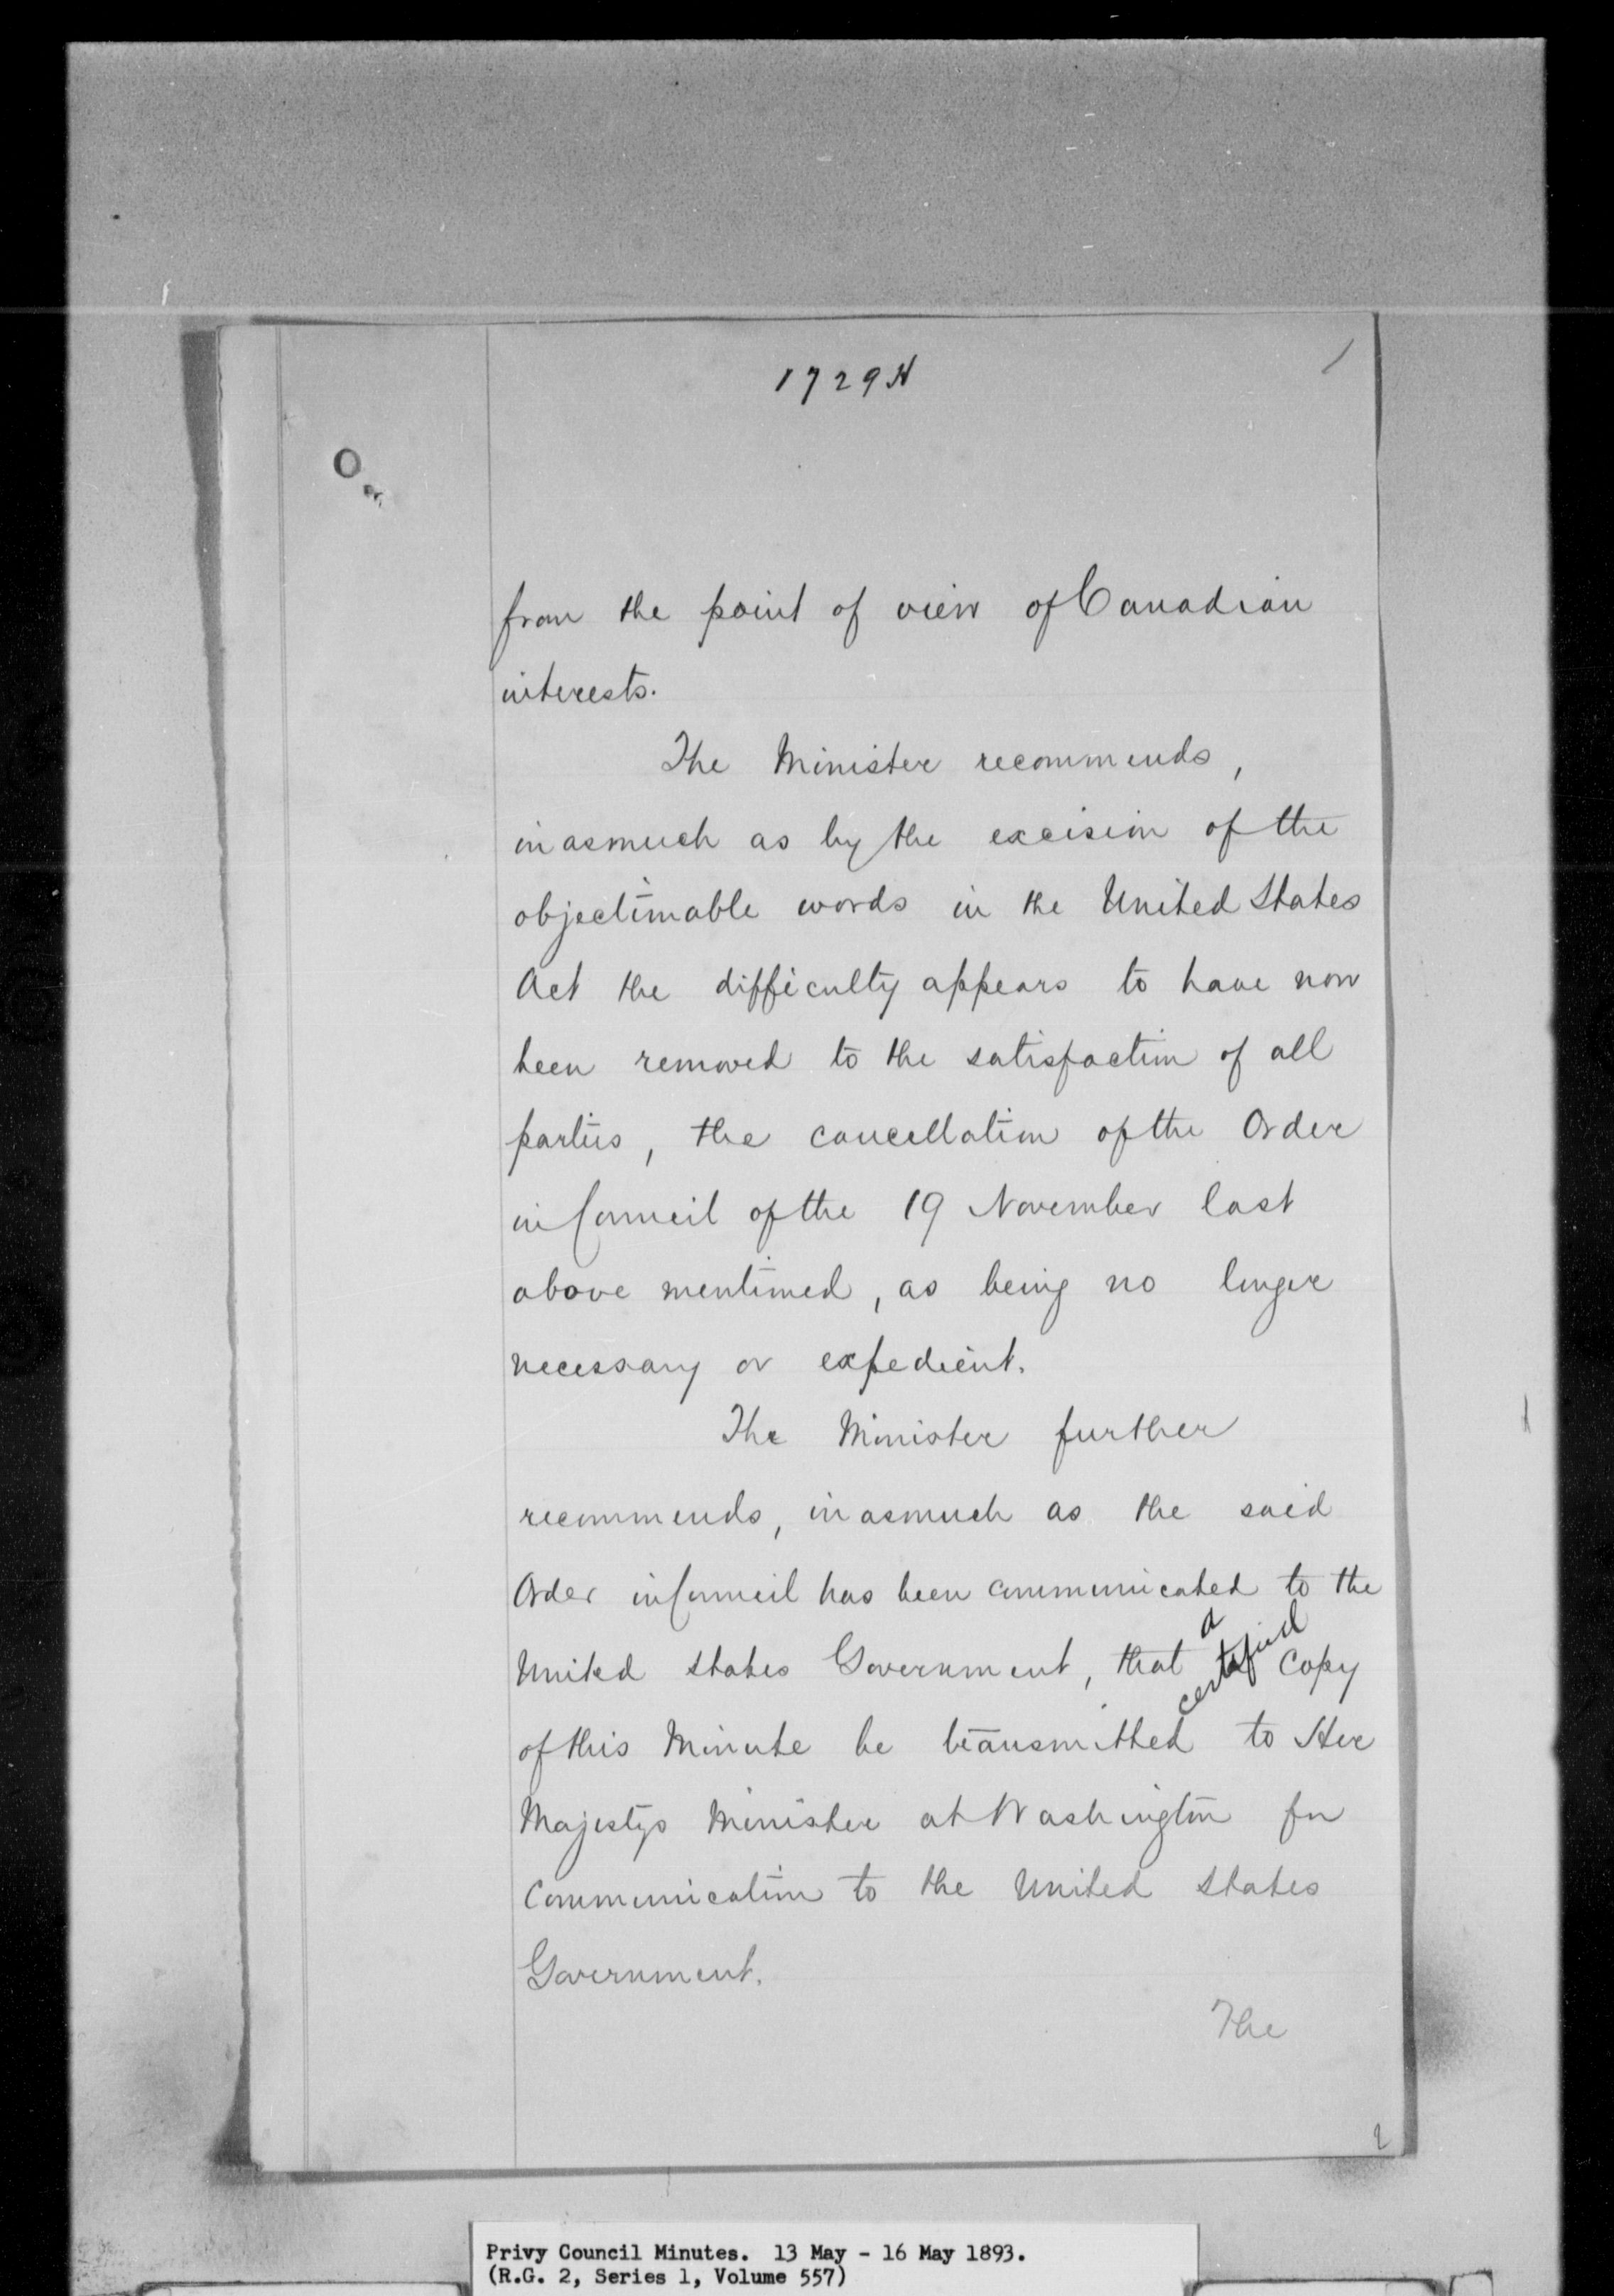 1729H
from the point of view of Canadian
interests.
The Minister recommends,
inasmuch as by the excision of the
objectionable words in the United States
Act the difficulty appears to have now
been removed to the satisfaction of all
parties, the cancellation of the Order
in Council of the 19 November last
above mentioned, as being no longer
necessary or expedient.
The Minister further
recommends, inasmuch as the said
Order in Council has been communicated to the
United States Government, that a certified copy
of this Minute be transmitted to Her
Majestys Minister at Washington for
communication to the United States
Government.
The
Privy Council Minutes. 13 May - 16 May 1893.
(R.G. 2, Series 1, Volume 557)